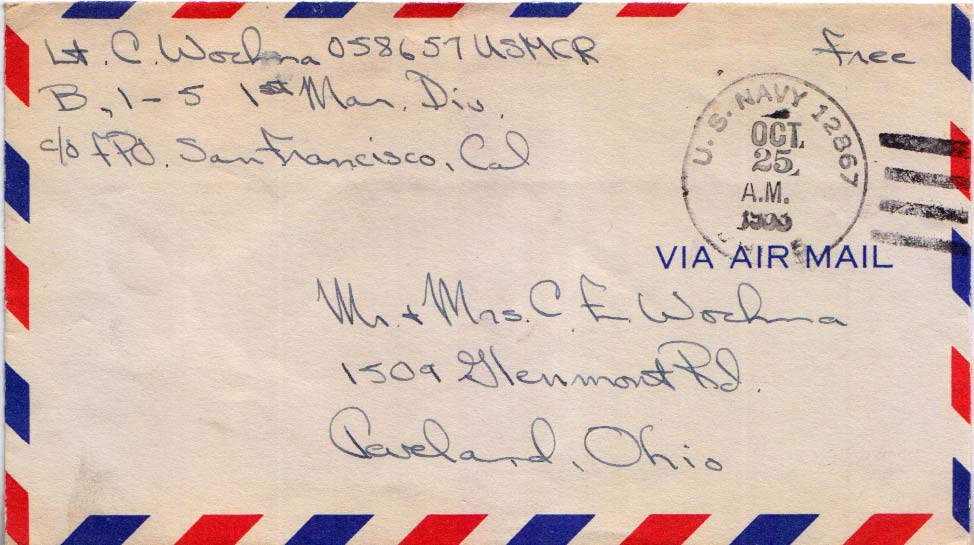 Lt. C. Wochna 058657 USMCR
Free
B, 1-5 1st Mar. Div.
c/o FPO. San Francisco, Cal
U.S. NAVY 12867
OCT.
25.
A.M.
VIA AIR MAIL
Mr. + Mrs. C. E. Wochna
1509 Glenmont Rd.
Cleveland, Ohio